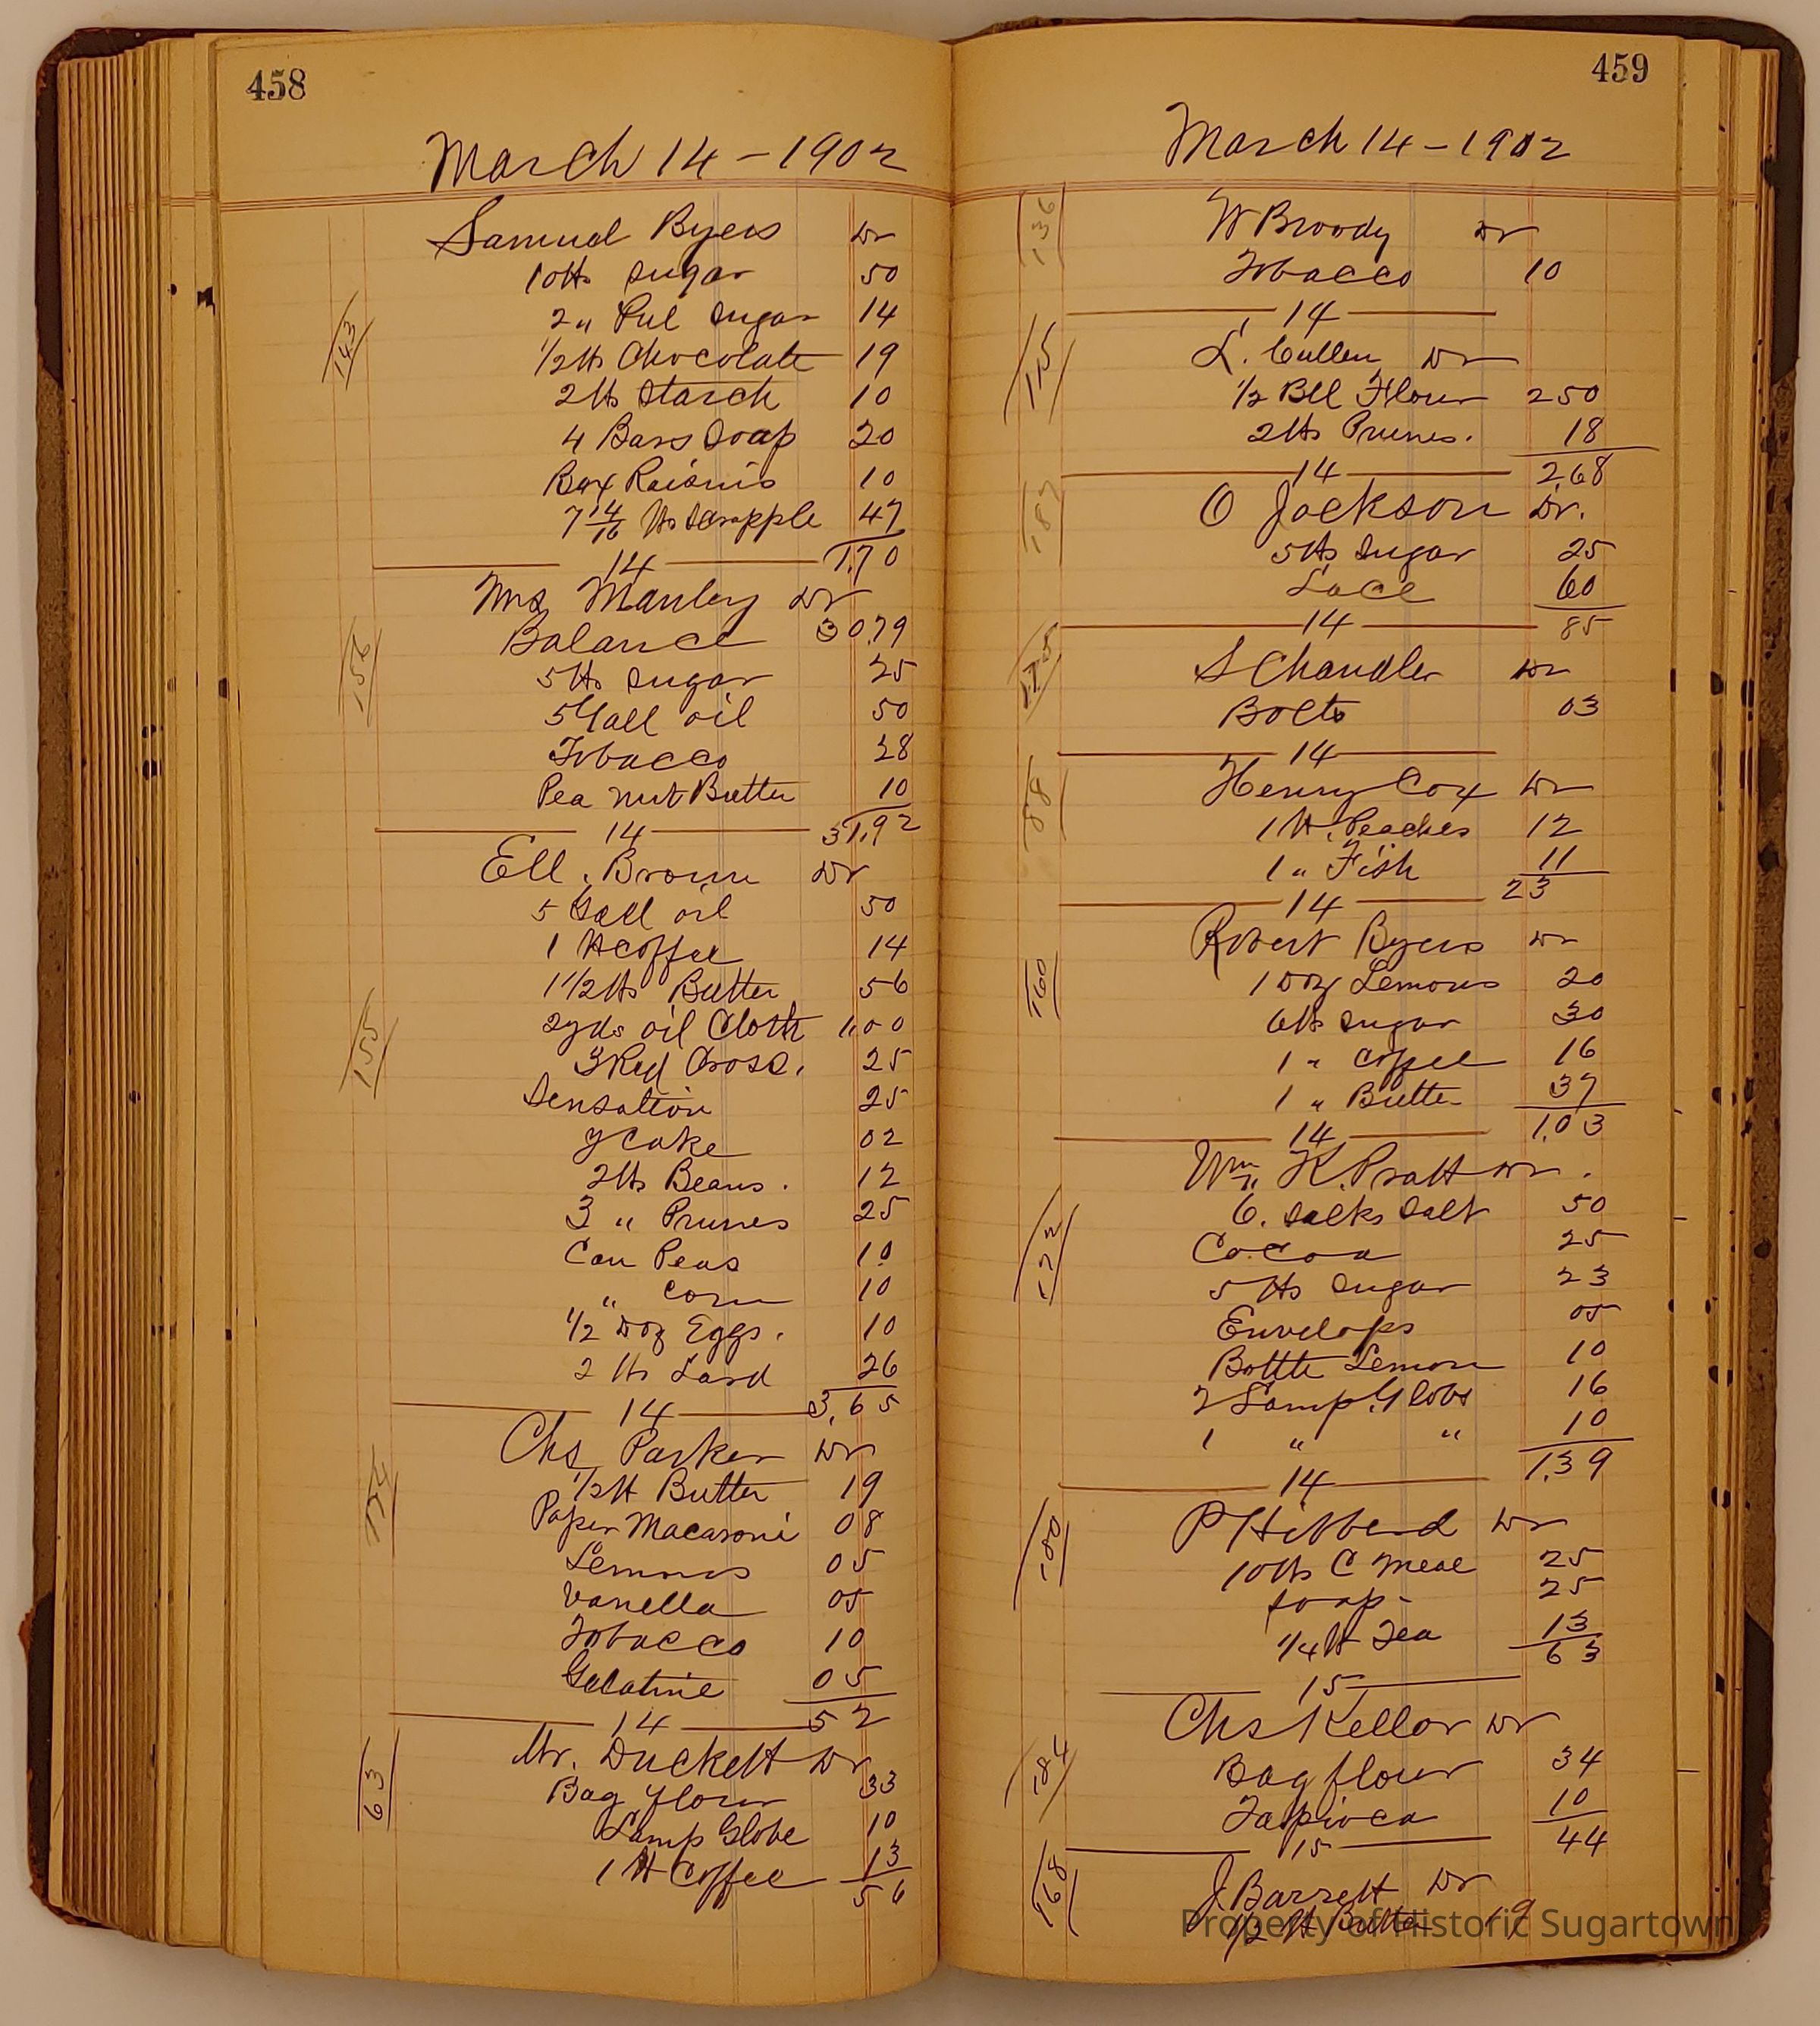 458
March 14 - 1902
Samuel Byers Dr
10 lbs sugar 50
2 " Pul sugar 14
143
1/2 lb Chocolate 19
2 lbs starch 10
4 Bars Soap 20
Box Raisins 10
7 14/16 lbs scrapple 47
14 1.70
Mrs Manley Dr
Balance 30.79
156
5 lbs sugar 25
5 Gall oil 50
Tobacco 28
Pea nut Butter 10
14 31.92
Ell. Brown Dr
5 Gall oil 50
1 lb coffee 14
1 1/2 lbs Butter 56
2 yds oil Cloth 1.00
155
3 Red Cross. 25
Sensation 25
y Cake 02
2 lbs Beans. 12
3 " Prunes 25
Can Peas 10
" corn 10
1/2 Doz Eggs. 10
2 lbs Lard 26
14 3.65
Chs Parker Dr
174
1/2 lb Butter 19
Paper Macaroni 08
Lemons 05
Vanella 05
Tobacco 10
Gelatine 05
14 52
Mr. Duckett Dr
63
Bag flour 33
Lamp Globe 10
1 lb Coffee 13
56
459
March 14 - 1902
136
W Broody Dr
Tobacco 10
14
115
L. Cullen Dr
1/2 Bbl Flour 250
2 lbs Prunes. 18
14 2.68
187
O Jackson Dr.
5 lbs sugar 25
Lace 60
14 85
175
S Chandler Dr
Bolts 03
14
88
Henry Cox Dr
1 lb. Peaches 12
1 " Fish 11
14 23
160
Robert Byers Dr
1 Doz Lemons 20
6 lbs sugar 30
1 " coffee 16
1 " Butter 37
14 1.03
Wm. K. Pratt Dr.
6. sacks salt 50
Cocoa 25
5 lbs sugar 23
Envelops 05
Bottle Lemon 10
2 Lamp Globs 16
1 " " 10
14 1.39
180
P Hibberd Dr
10 lbs C Meal 25
soap - 25
1/4 lb Tea 13
63
15
184
Chs Kellar Dr
Bag flour 34
Tapioca 10
15 44
168
J. Barrett Dr
1/2 lb Butter 19
Property of Historic Sugartown